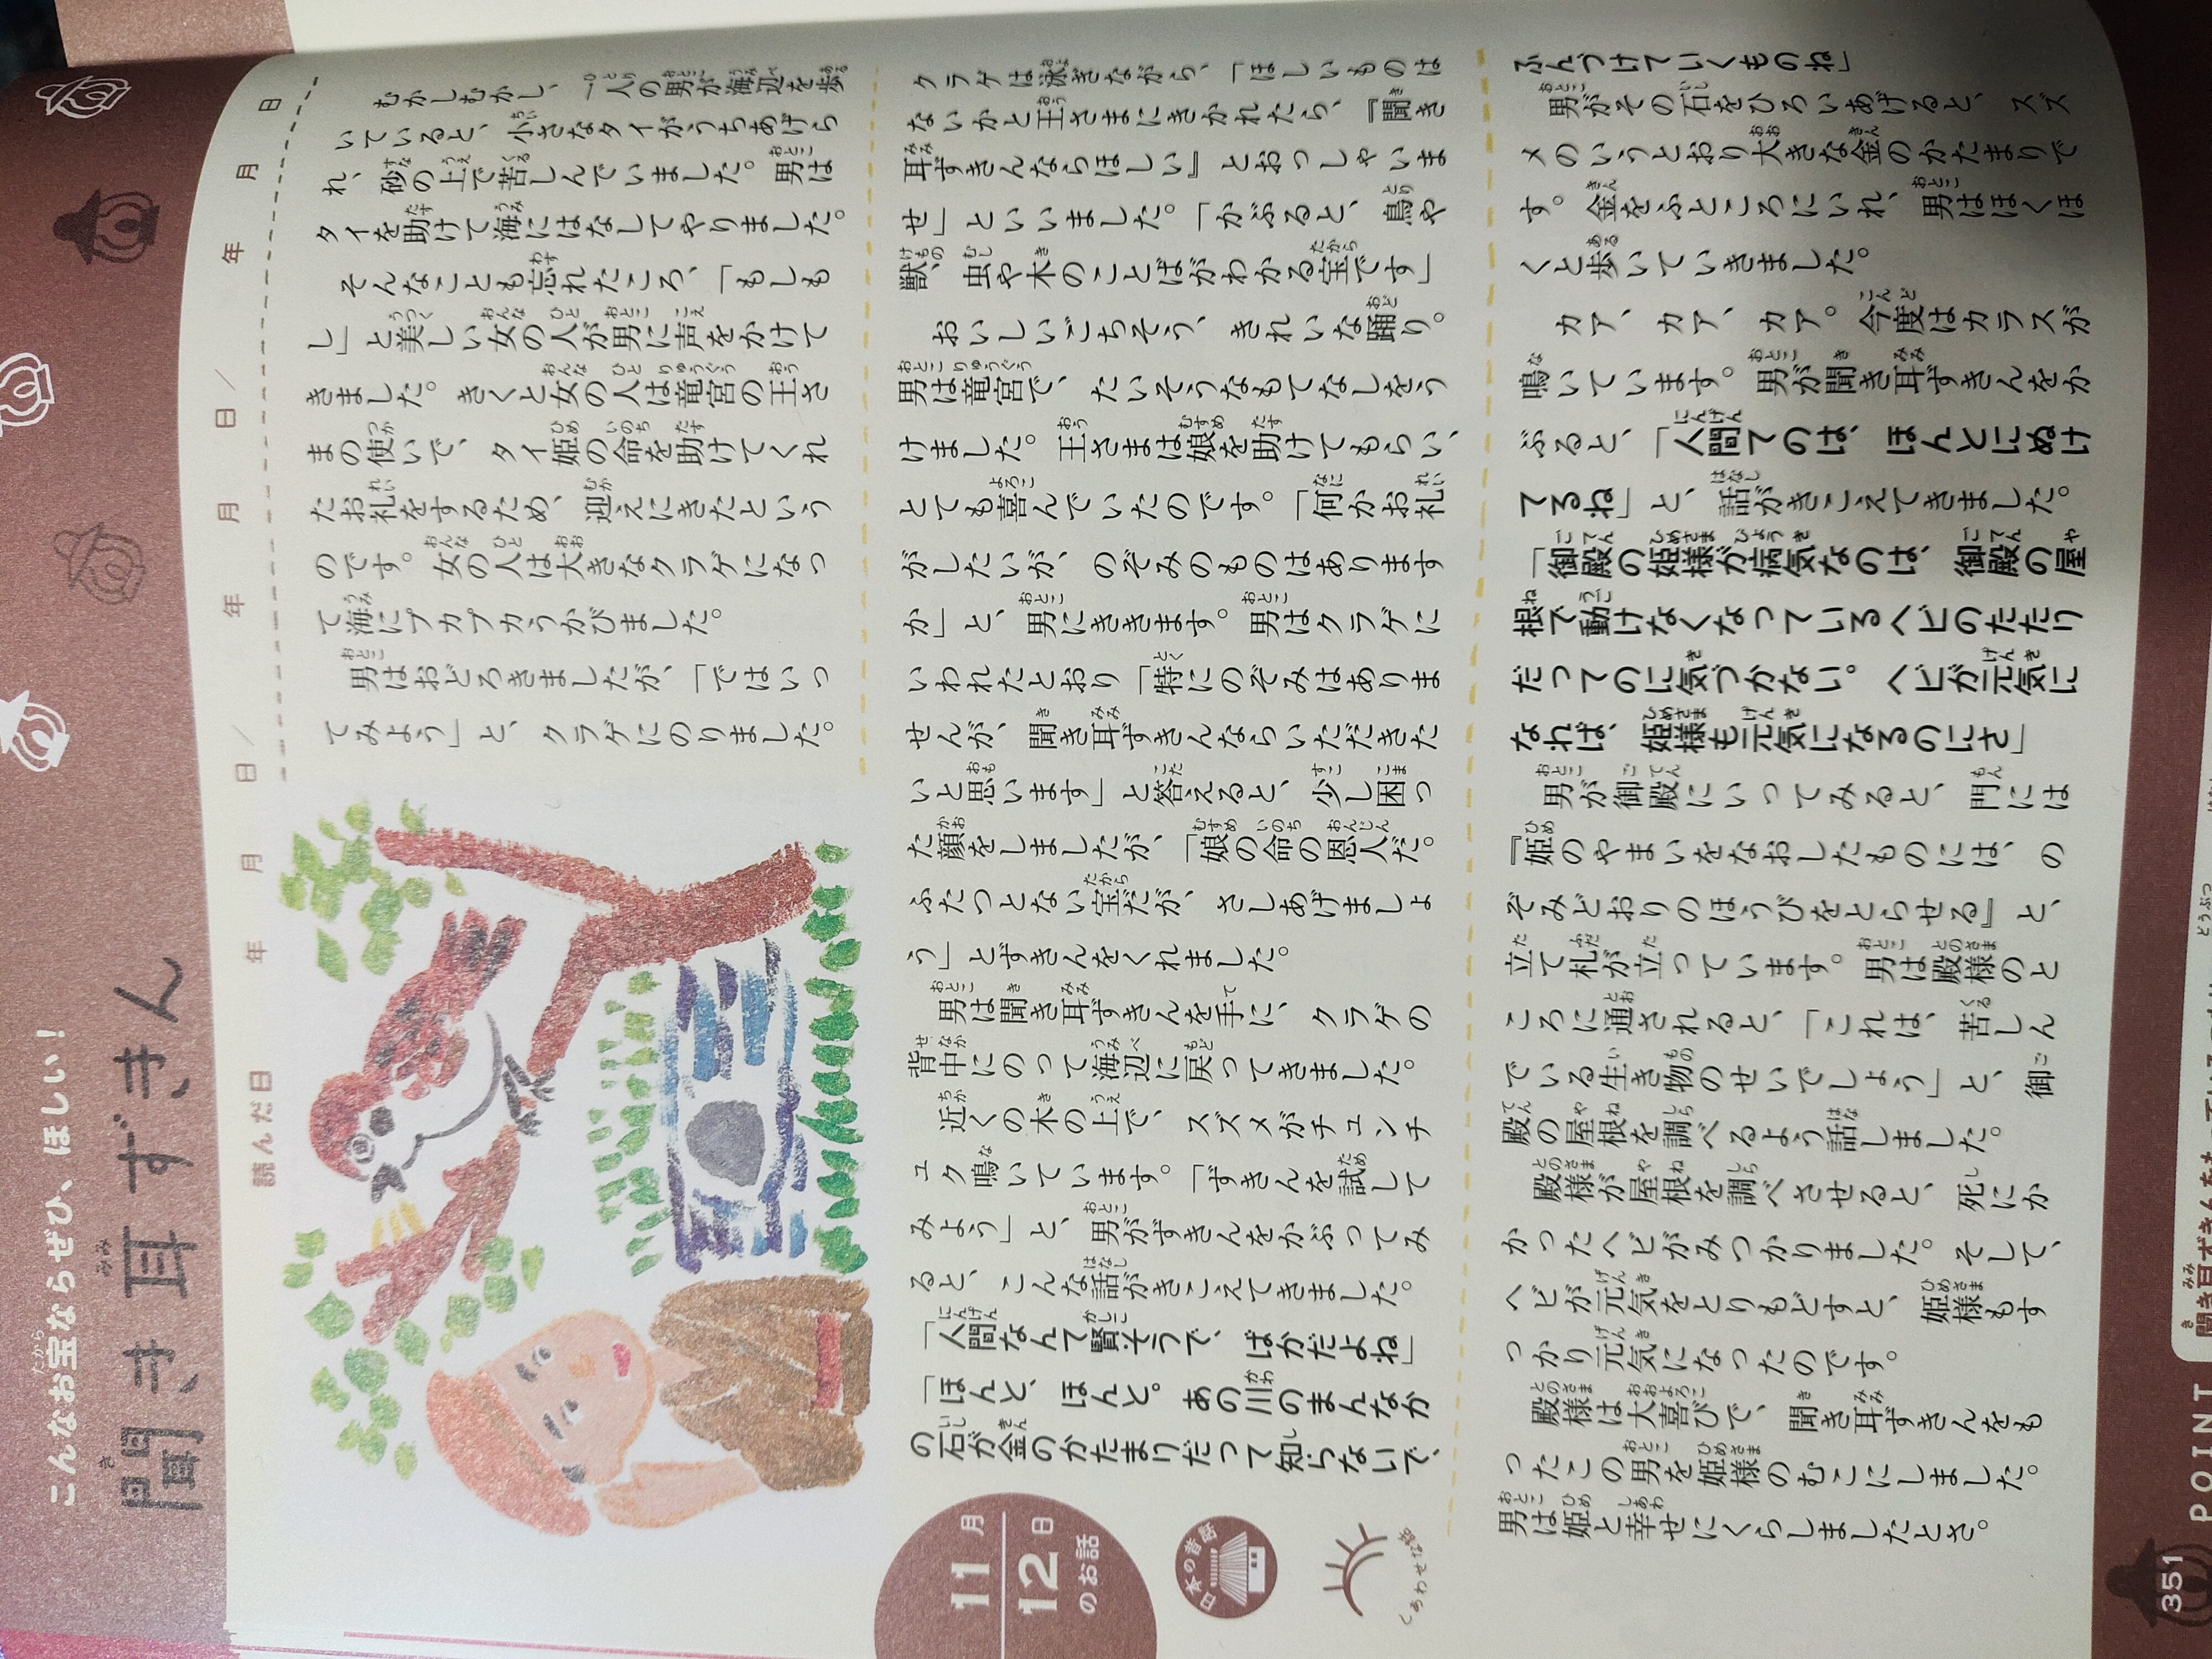 こんなお宝ならぜひ、ほしい!
聞き耳ずきん
読んだ日 年 月 日/ 年 月 日/ 年 月 日
むかしむかし、一人の男が海辺を歩
いていると、小さなタイがうちあげら
れ、砂の上で苦しんでいました。男は
タイを助けて海にはなしてやりました。
そんなことも忘れたころ、「もしも
し」と美しい女の人が男に声をかけて
きました。きくと女の人は竜宮の王さ
まの使いで、タイ姫の命を助けてくれ
たお礼をするため、迎えにきたという
のです。女の人は大きなクラゲになっ
て海にプカプカうかびました。
男はおどろきましたが、「ではいっ
てみよう」と、クラゲにのりました。
クラゲは泳ぎながら、「ほしいものは
ないかと王さまにきかれたら、『聞き
耳ずきんならほしい』とおっしゃいま
せ」といいました。「かぶると、鳥や
獣、虫や木のことばがわかる宝です」
おいしいごちそう、きれいな踊り。
男は竜宮で、たいそうなもてなしをう
けました。王さまは娘を助けてもらい、
とても喜んでいたのです。「何かお礼
がしたいが、のぞみのものはあります
か」と、男にききます。男はクラゲに
いわれたとおり「特にのぞみはありま
せんが、聞き耳ずきんならいただきた
いと思います」と答えると、少し困っ
た顔をしましたが、「娘の命の恩人だ。
ふたつとない宝だが、さしあげましょ
う」とずきんをくれました。
男は聞き耳ずきんを手に、クラゲの
背中にのって海辺に戻ってきました。
近くの木の上で、スズメがチュンチ
ュク鳴いています。「ずきんを試して
みよう」と、男がずきんをかぶってみ
ると、こんな話がきこえてきました。
「人間なんて賢そうで、ばかだよね」
「ほんと、ほんと。あの川のまんなか
の石が金のかたまりだって知らないで、
ふんづけていくものね」
男がその石をひろいあげると、スズ
メのいうとおり大きな金のかたまりで
す。金をふところにいれ、男はほくほ
くと歩いていきました。
カア、カア、カア。今度はカラスが
鳴いています。男が聞き耳ずきんをか
ぶると、「人間てのは、ほんとにぬけ
てるね」と、話がきこえてきました。
「御殿の姫様が病気なのは、御殿の屋
根で動けなくなっているヘビのたたり
だってのに気づかない。ヘビが元気に
なれば、姫様も元気になるのにさ」
男が御殿にいってみると、門には
『姫のやまいをなおしたものには、の
ぞみどおりのほうびをとらせる』と、
立て札が立っています。男は殿様のと
ころに通されると、「これは、苦しん
でいる生き物のせいでしょう」と、御
殿の屋根を調べるよう話しました。
殿様が屋根を調べさせると、死にか
かったヘビがみつかりました。そして、
ヘビが元気をとりもどすと、姫様もす
っかり元気になったのです。
殿様は大喜びで、聞き耳ずきんをも
ったこの男を姫様のむこにしました。
男は姫と幸せにくらしましたとさ。
11月
12日
のお話
日本の昔話
しあわせな話
POINT
351